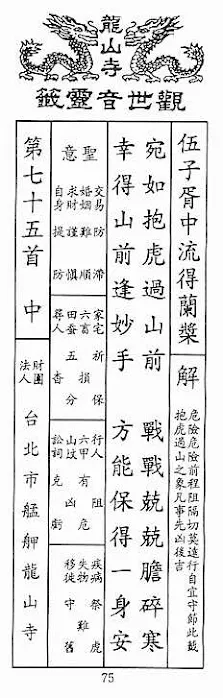 龍山寺
觀世音靈籤
伍子胥中流得蘭槳
解
危險危險前程阻隔切莫進行自宜守節此籤
抱虎過山之象凡事先凶後吉
宛如抱虎過山前 戰戰兢兢膽碎寒
幸得山前逢妙手 方能保得一身安
聖意
交易防滯
婚姻難順
求財謹慎
自身提防
家宅祈保
六畜損
田蚕五分
尋人杳
行人阻
六甲有危
山坟凶
訟詞克虧
疾病祭虎
失物難
移徙守舊
第七十五首 中
財團法人 台北市艋舺龍山寺
75